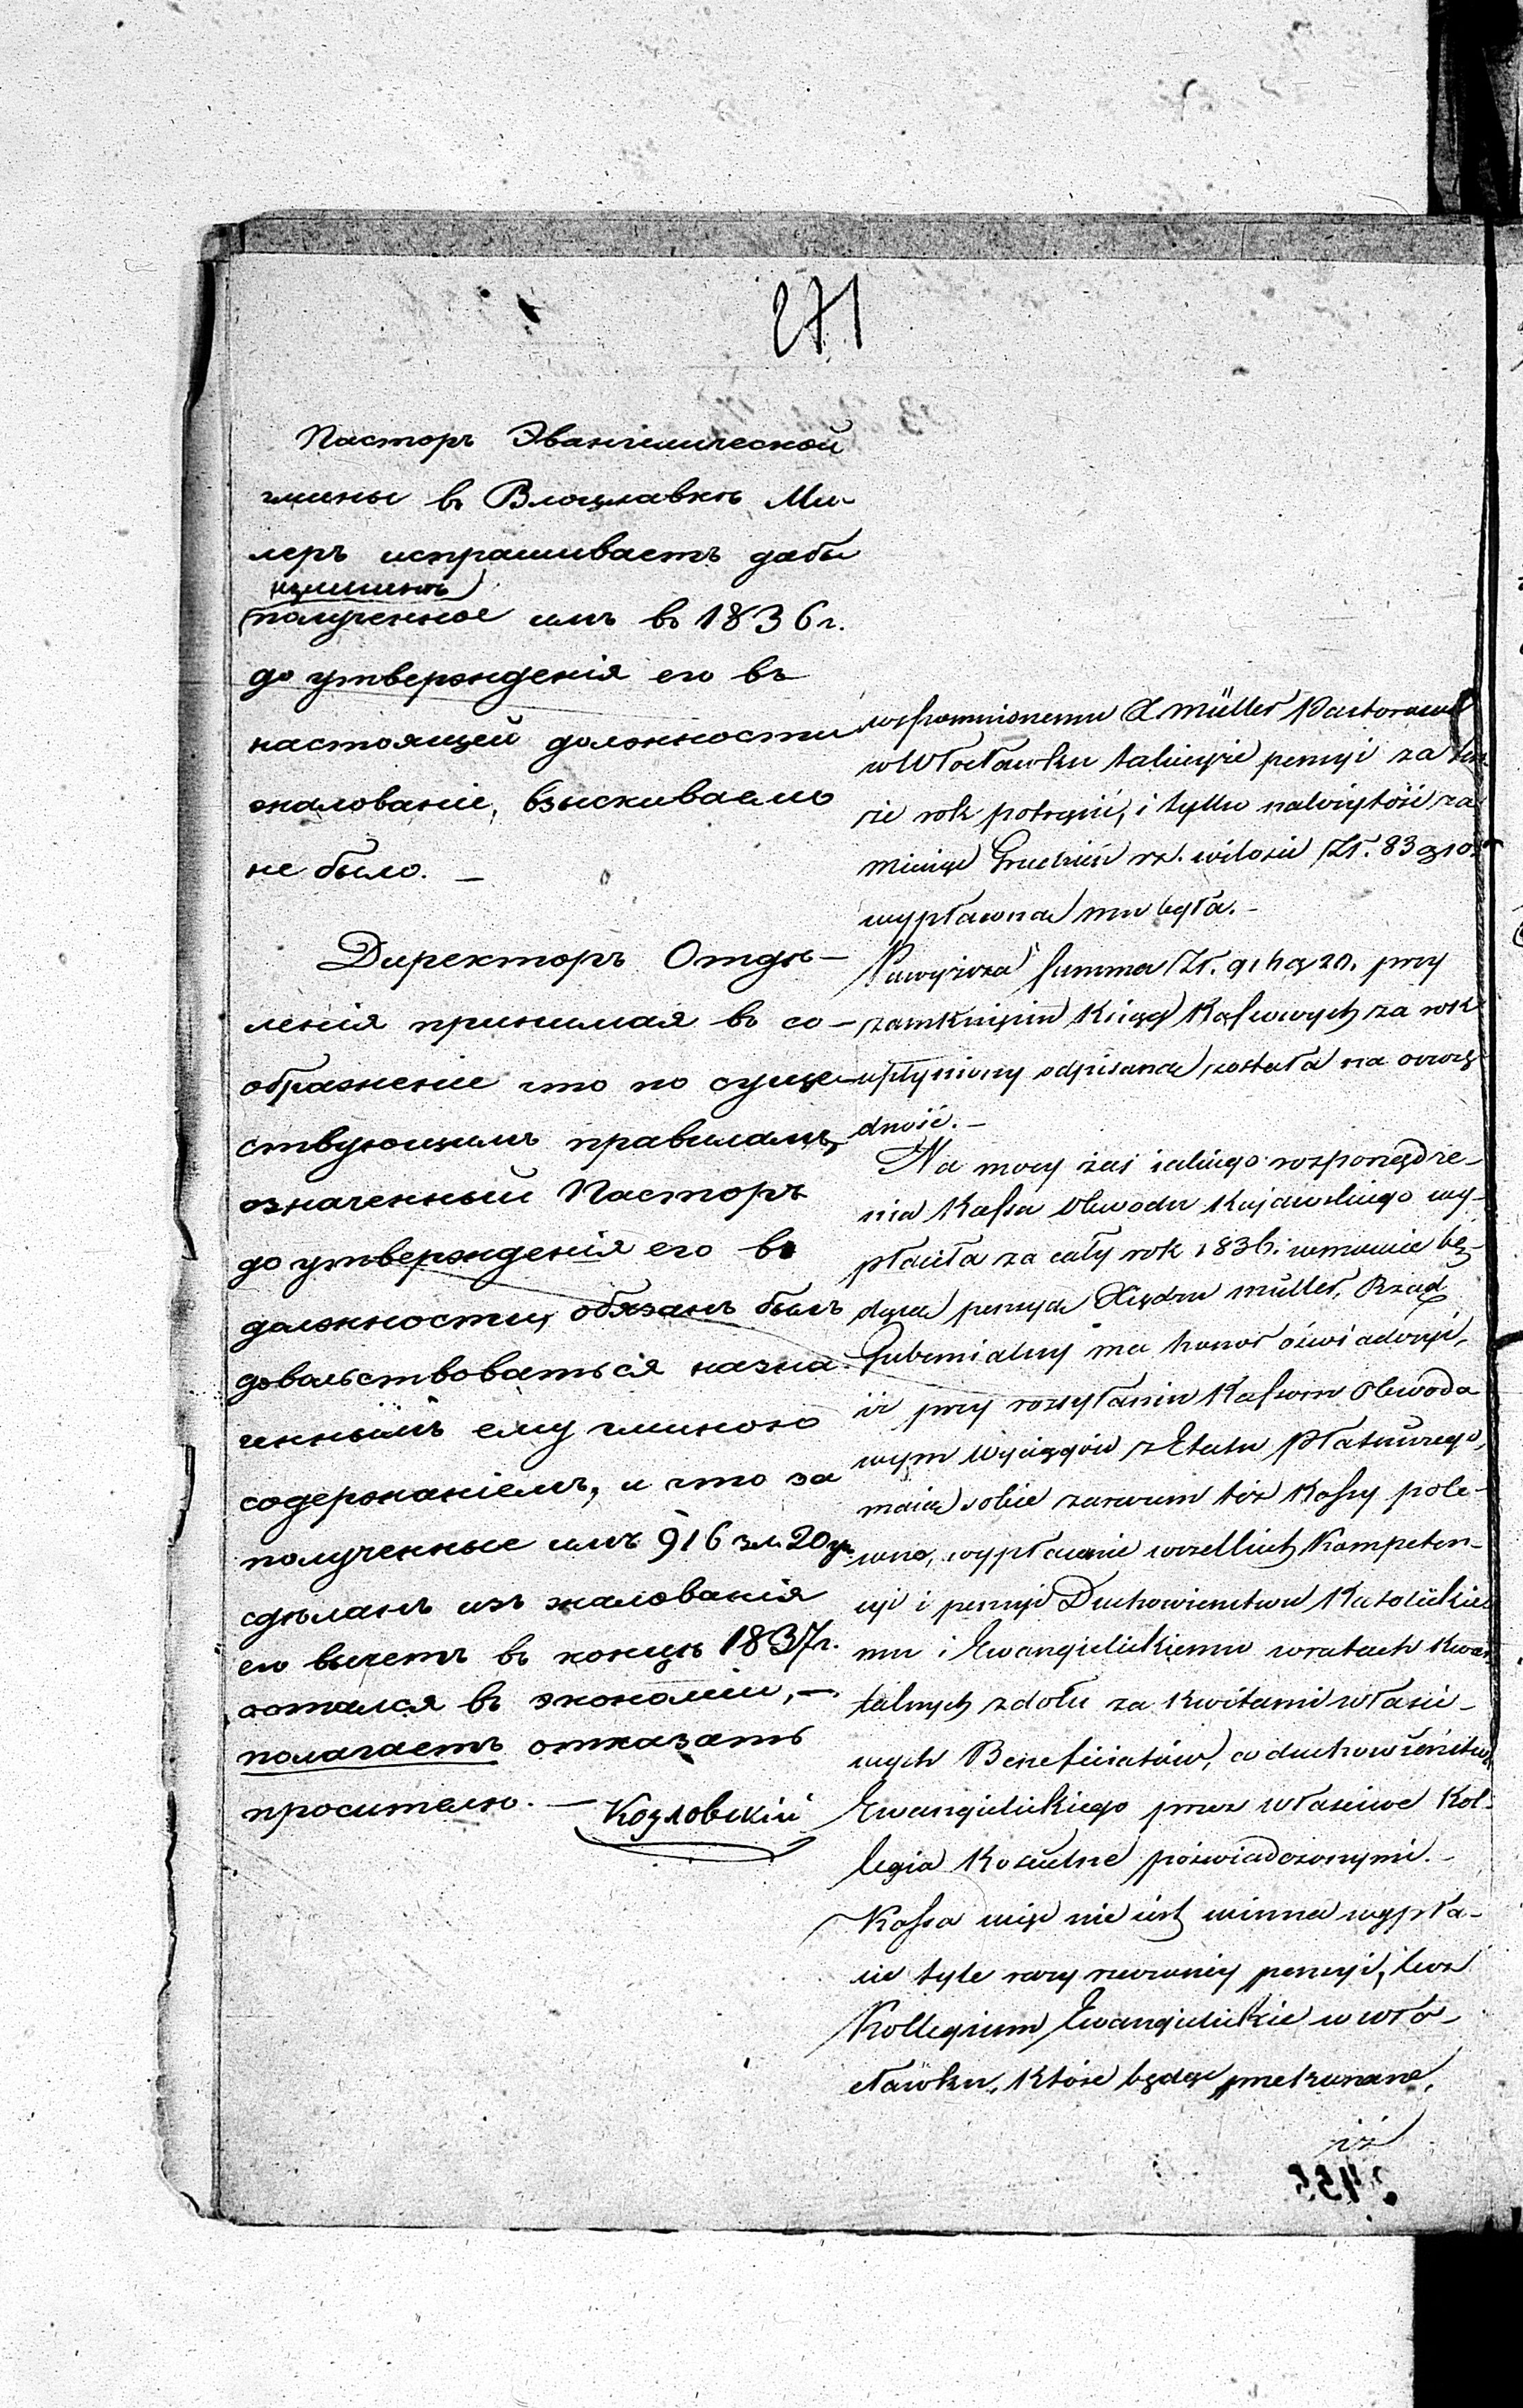 271
Пасторъ Эвангелической
гмины въ Влоцлавкѣ Ми-
леръ испрашиваетъ дабы
излишнѣ
полученное имъ въ 1836 г.
до утвержденія его въ
настоящей должности
жалованіе, взыскиваемо
не было. —
Директоръ Отдѣ-
ленія принимая въ со-
ображеніе что по суще-
ствующимъ правиламъ,
означенный Пасторъ
до утвержденія его въ
должности, обязанъ былъ
довольствоваться назна-
ченнымъ ему гминою
содержаніемъ, и что за
полученные имъ 916 зл. 20 гр.
сдѣланъ изъ жалованія
его вычетъ въ концѣ 1837 г.
остался въ экономіи, —
полагаетъ отказать
просителю. — Козловскій
wspomnionemu X Müller Pastorowi
w Włocławku takieyże pensyi za ten
że rok potrącić, i tylko należytość za
miesiąc Grudzień rz. w ilości Zł. 83 g 10
wypłaconą mu była. —
Powyższa summa Zł. 916 g 20. przy
zamknięciu Kiąg Kassowych za rok
upłyniony odpisana została na oszczę-
dność. —
Na mocy zaś iakiego rozporządze-
nia Kassa Obwodu Kujawskiego wy-
płaciła za cały rok 1836. w mowie bę-
dącą pensyą Xiędzu Müller, Rząd
Gubernialny ma honor oświadczyć,
iż przy rozsyłaniu Kassom Obwodo
wym Wyciągów z Etatu Płatniczego,
maią sobie zarazem też Kassy pole-
cono, wypłacanie wszelkich Kompeten-
cyi i pensyi Duchowieństwu Katolickie
mu i Ewangielickiemu w ratach kwar
talnych z dołu za kwitami właści-
wych Beneficiatów, a duchowieństwa
Ewangielickiego przez właściwe Kol-
legia Kościelne poświadczonymi. —
Kassa więc nie iest winna wypła-
cie tyle razy rzeczoney pensyi, lecz
Kollegium Ewangielickie w Wło-
cławku, które będąc przekonane,
iż